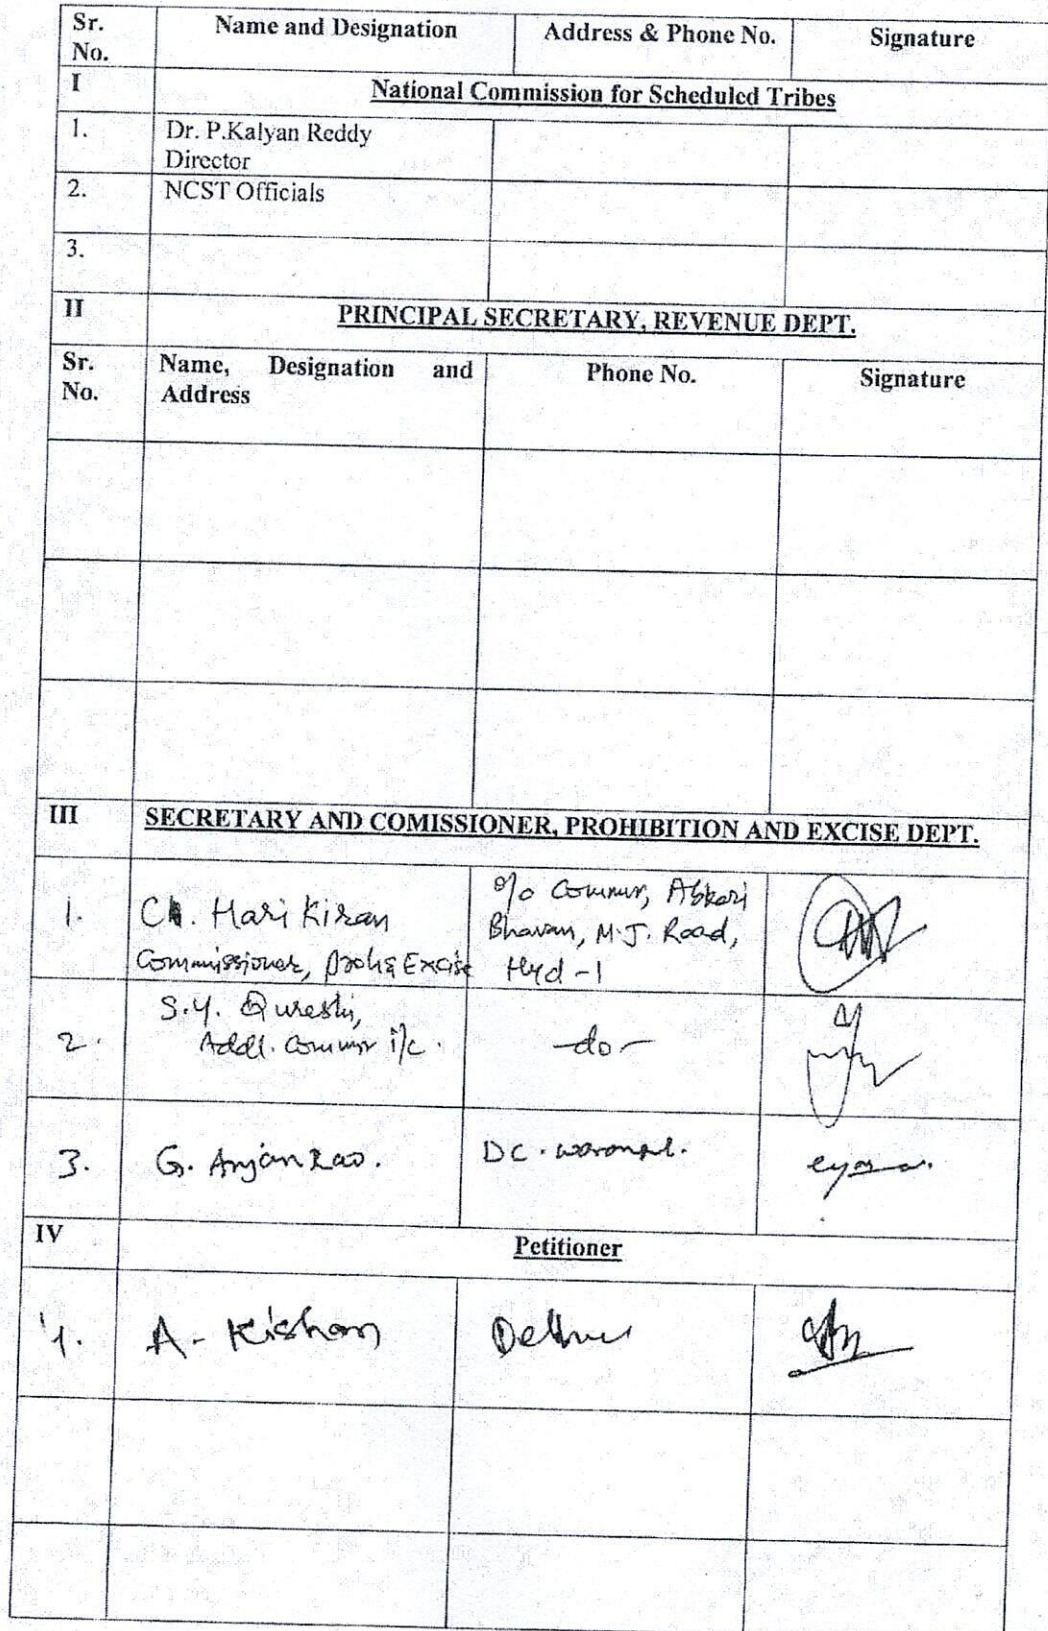 Sr. No. Name and Designation Address & Phone No. Signature
I National Commission for Scheduled Tribes
1. Dr. P.Kalyan Reddy
Director
2. NCST Officials
3.
II PRINCIPAL SECRETARY, REVENUE DEPT.
Sr. No. Name, Designation and Address Phone No. Signature
III SECRETARY AND COMISSIONER, PROHIBITION AND EXCISE DEPT.
1. Ch. Hari Kiran
Commissioner, Proh & Excise
O/o Commr, Abkari
Bhavan, M.J. Road,
Hyd - 1
2. S.Y. Qureshi,
Addl. Commr i/c.
-do-
3. G. Anjan Rao. DC.
IV Petitioner
1. A. Kishan